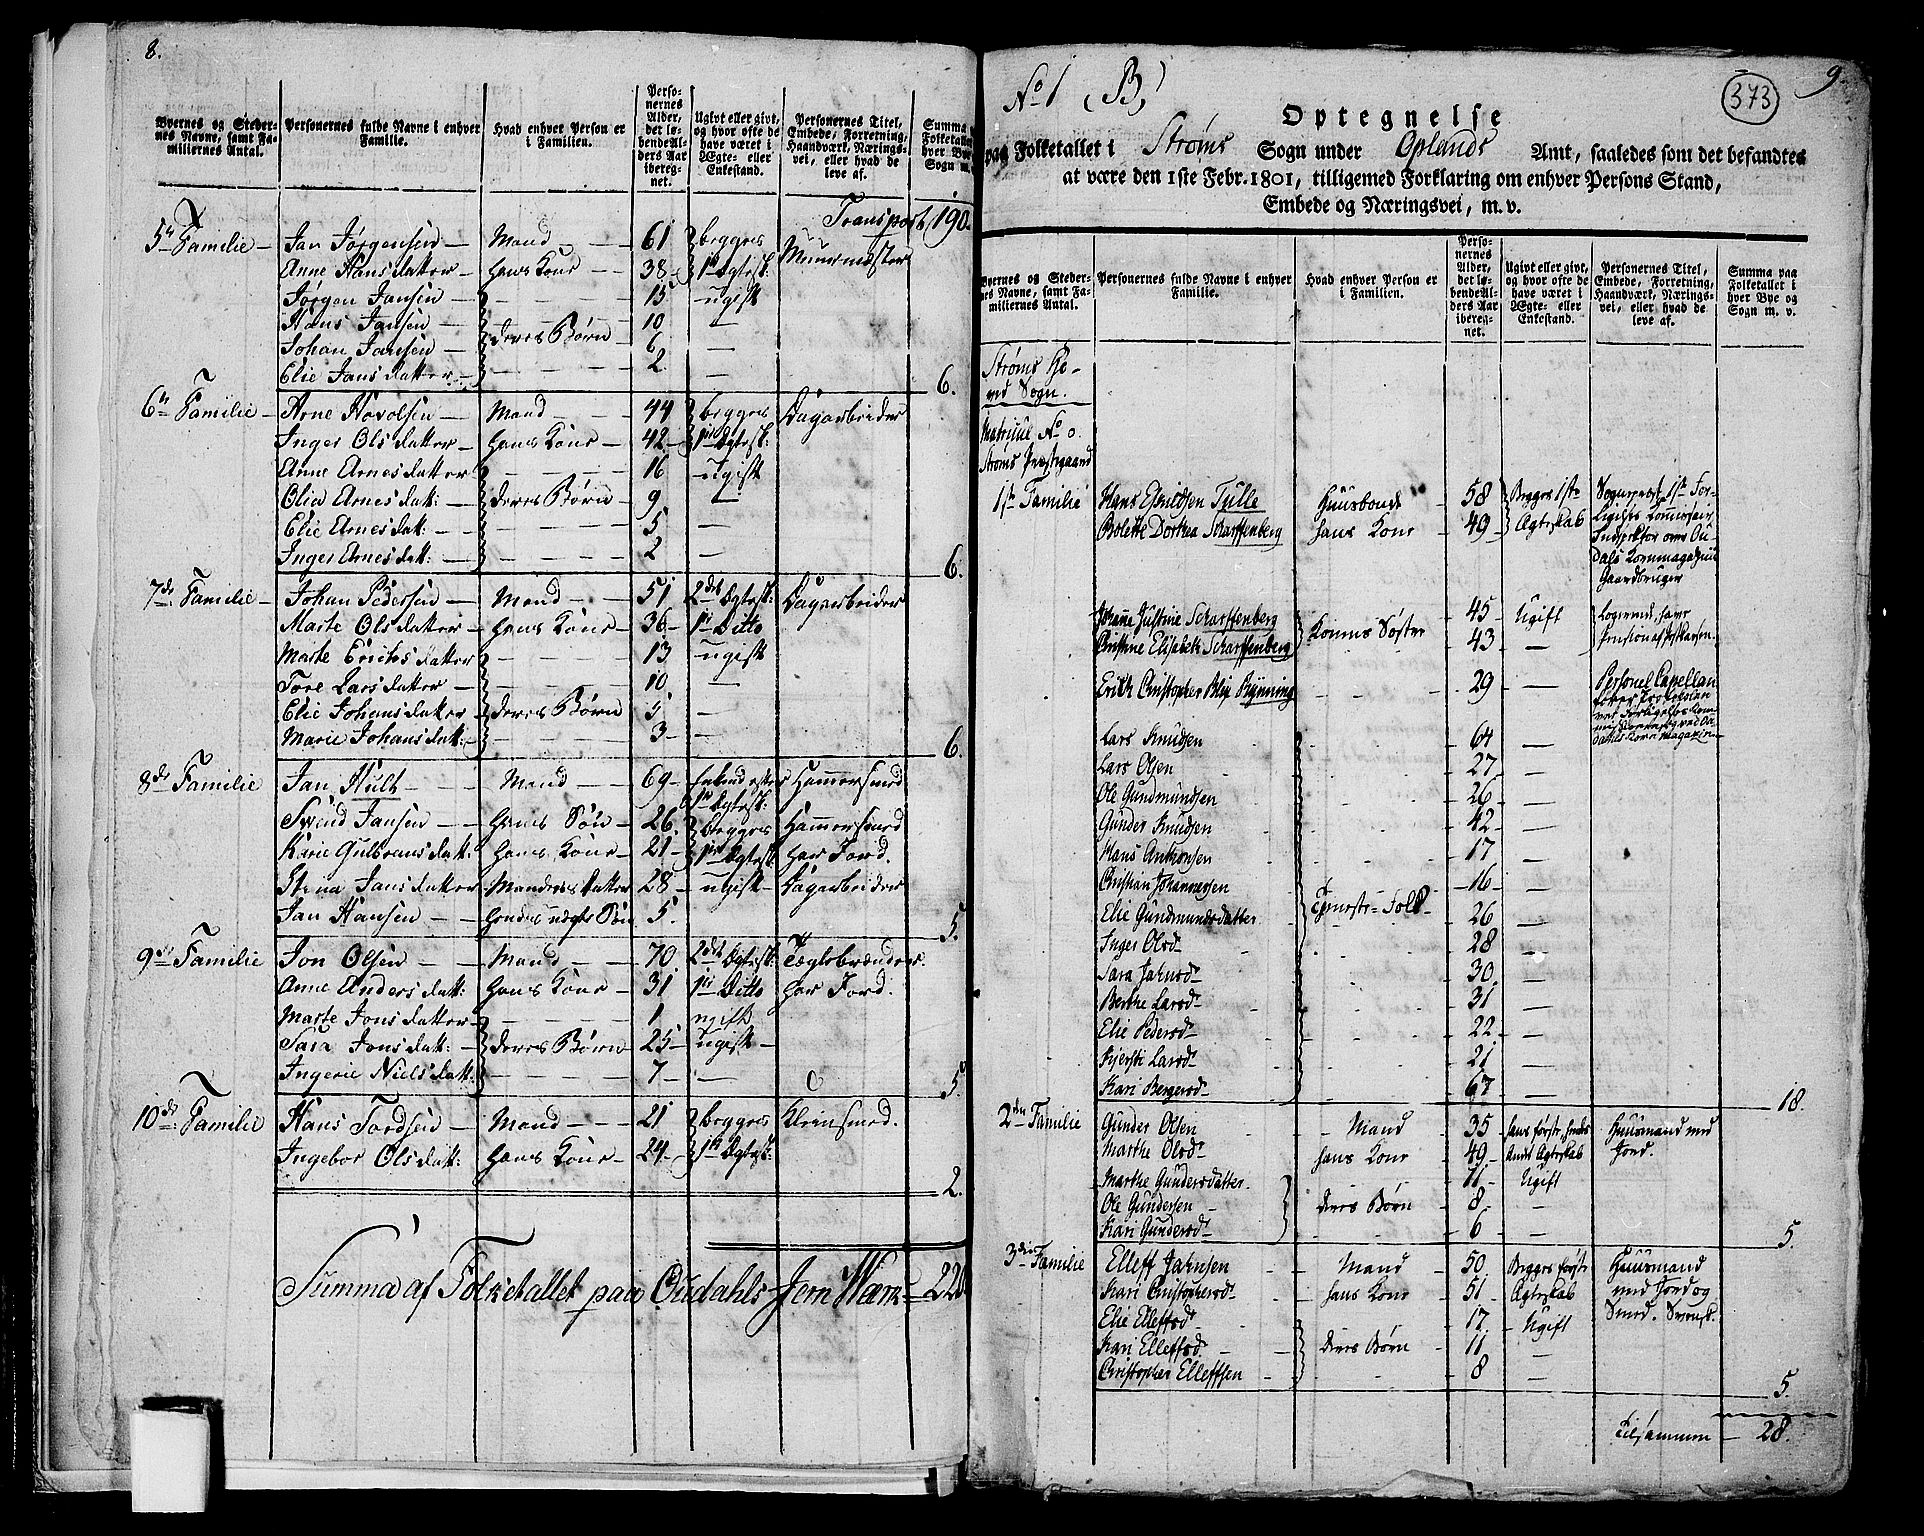 8.
Byernes og Steder-
nes Navne, samt Fa-
miliernes Antal.
Personernes fulde Navne i enhver
Familie.
Hvad enhver Person er
i Familien.
Perso-
nernes
Alder,
det lø-
bende Al-
ders Aar
iberegnet.
Ugivt eller givt,
og hvor ofte de
have været i
Ægte- eller
Enkestand.
Personernes Titel,
Embede, Forretning,
Haandværk, Nærings-
vei, eller hvad de
leve af.
Summa
Folketallet
hver Bye
Sogn m.
Transport 190.
5te Familie – Jan Jørgensen – Mand – 61 begges Muurmester
Anne Hansdatter – hans Kone – 38 1te Ægtesk:
Jørgen Jansen – 15 ugift
Hans Jansen – deres Børn 10 –
Johan Jansen – 6 –
Elie Jansdatter – 2 – 6.
6te Familie – Arne Havolsen – Mand – 44 begges Dagarbeider
Inger Olsdatter – hans Kone – 42 – 1te Ægtesk:
Anne Arnesdatter – 16 ugift
Olia Arnesdatt: deres Børn – 9 –
Elie Arnesdatt: 5 –
Inger Arnesdatt: 2 – 6.
7de Familie – Johan Pedersen – Mand – 51 2det Ægtesk: Dagarbeider
Marte Olsdatter – hans Kone – 36 – 1te Ditto
Marte Erichsdatter – 13 ugift
Tore Larsdatter – 10 –
Elie Johansdatter – deres Børn 5 –
Marie Johansdatt: – 3 – 6.
8de Familie Jan Hult – Mand – 69 – Enkemd efter Hammersmed
1te Ægtesk:
Svend Jansen – hans Søn – 26. begges Hammersmed
Karie Gulbransdatt: hans Kone – 21 – 1te Ægtesk: har Jord.
Stina Jansdatter Mandens datter 28 – ugift – Dagarbeider
Jan Hansen – hendes uægte Søn 5. 5.
9de Familie Jon Olsen – Mand – 70 2det Ægtesk: Teglebrænder.
Anne Andersdatt: hans Kone – 31 1te Ditto har Jord.
Marte Jonsdatter – 1. ugift
Sara Jonsdatt: – deres Børn – 25 – ugift –
Ingerie Nielsdatt: 7 – – 5.
10de Familie Hans Tordsen – Mand – 21 begges Kleinsmed.
Ingebor Olsdatt: hans Kone – 24 – 1te Ægtesk: 2.
Summa af Folketallet paa Oudahls Jern Værk = 220
No 1 (B)
373
9.
Optegnelse
paa Folketallet i Strøms Sogn under Oplands Amt, saaledes som det befandtes
at være den 1ste Febr. 1801, tilligemed Forklaring om enhver Persons Stand,
Embede og Næringsvei, m. v.
Byernes og Steder-
nes Navne, samt Fa-
miliernes Antal.
Personernes fulde Navne i enhver
Familie.
Hvad enhver Person er
i Familien.
Perso-
nernes
Alder,
det lø-
bende Al-
ders Aar
iberegnet.
Ugivt eller givt,
og hvor ofte de
have været i
Ægte- eller
Enkestand.
Personernes Titel,
Embede, Forretning,
Haandværk, Nærings-
vei, eller hvad de
leve af.
Summa paa
Folketallet i
hver Bye og
Sogn m. v.
Strøms Ho-
ved Sogn.
Matricul No 0.
Strøms Præstegaard
1ste Familie Hans Essendsen Tulle Huusbonde 58 Begges 1ste Sognepræst, 1ste For-
Bolette Dorthea Scharffenberg hans Kone 49 Ægteskab ligelses Kommissair
Indspektør over Ou-
dals Kornmagazin
Gaardbruger
Johanne Justine Scharffenberg Konens Søstre 45 Ugift Logerende, have
Christine Elisabeth Scharffenberg 43 – Pension af Postkassen.
Erich Christopher Blix Rynning 29 – Personel Capellan
Lars Knudsen 64 –
Lars Olsen 27 –
Ole Gundmundsen 26 –
Gunder Knudsen 42 –
Hans Anthonsen 17 –
Christian Johannesen 16 –
Elie Gundmundsdatter Tieneste-Folk 26 –
Inger Olsd. 28 –
Sara Jahnsd. 30 –
Berthe Larsd. 31 –
Elie Pedersd. 22 –
Kjersti Larsd. 21 –
Kari Bergersd. 67 – 18.
2den Familie Gunder Olsen Mand 35 hans første, hendes Huusmand med
Marthe Olsd. hans Kone 49 andet Ægteskab Jord.
Marthe Gundersdatter 11 Ugift
Ole Gundersen – deres Børn 8 –
Kari Gundersd. 6 – 5.
3die Familie Elleff Jahnsen Mand 50 Begges første Huusmand
Kari Christophersd. hans Kone 51 Ægteskab med Jord og
Elie Elleffsd. 17 Ugift Smed. Svensk.
Kari Elleffsd. deres Børn 11 –
Christopher Elleffsen 8 – 5.
Tilsammen – 28.